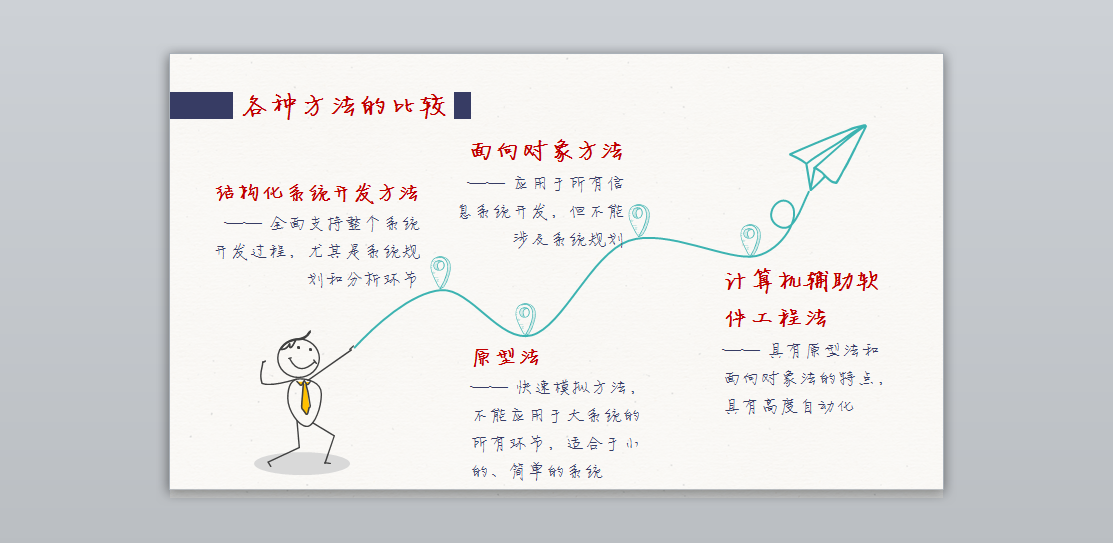 各种方法的比较
结构化系统开发方法
—— 全面支持整个系统
开发过程，尤其是系统规
划和分析环节
面向对象方法
—— 应用于所有信
息系统开发，但不能
涉及系统规划
原型法
—— 快速模拟方法，
不能应用于大系统的
所有环节，适合于小
的、简单的系统
计算机辅助软
件工程法
—— 具有原型法和
面向对象法的特点，
具有高度自动化